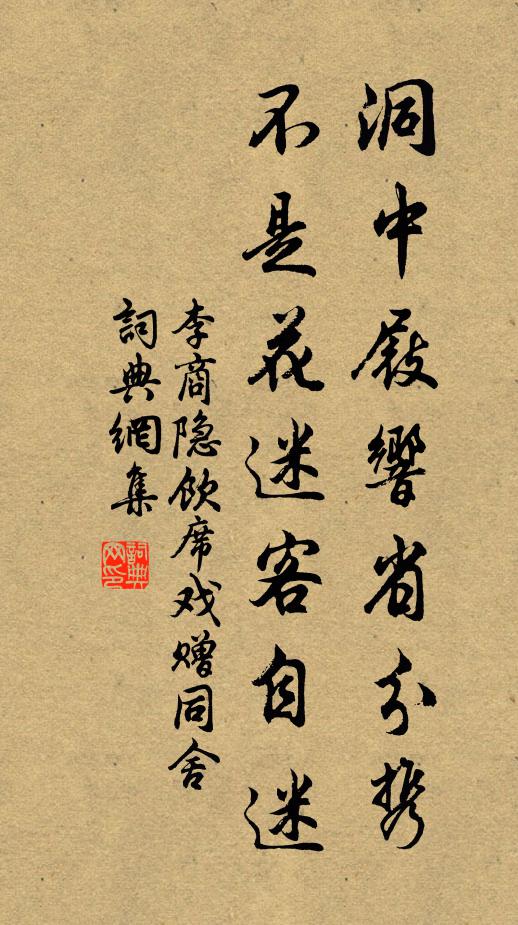 洞中屐響省分携
不是花迷客自迷
李商隐飲席戏赠同舍
詞典網集
詞典網印